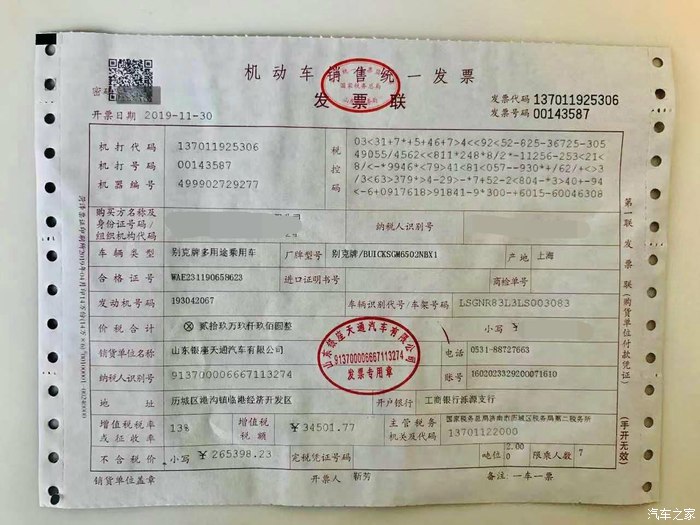 机动车销售统一发票
发票联
开票日期 2019-11-30
发票代码 137011925306
发票号码 00143587
机打代码 137011925306
机打号码 00143587
机器编号 499902729277
税控码
03<31+7*+5+46+7>4<<92<52-825-36725-305
49055/4562<<811*248*8/2*-11256-253<21<
8/<-*9946*<79>41<81<057--930*+/62/+<>
/3<63>379*>4-29>-*7+52-2<804-*3>40+-94
<-6+0917618>91841-9*300-+6015-60046308
购买方名称及
身份证号码/
组织机构代码
纳税人识别号
车辆类型 别克牌多用途乘用车 厂牌型号 别克牌/BUICKSGM6502NBX1 产地 上海
合格证号 WAE231190658623 进口证明书号 商检单号
发动机号码 193042067 车辆识别代号/车架号码 LSGNR83L3LS003083
价税合计 ⊗ 贰拾玖万玖仟玖佰圆整 小写 ¥
销货单位名称 山东银座天通汽车有限公司 电话 0531-88727663
纳税人识别号 913700006667113274 账号 1602023329200071610
地址 历城区港沟镇临港经济开发区 开户银行 工商银行泺源支行
增值税税率或征收率 13% 增值税税额 ¥34501.77 主管税务机关及代码 国家税务总局济南市历城区税务局第二税务所
13701122000
不含税价 小写 ¥265398.23 完税凭证号码 吨位 2.00 限乘人数 7
销货单位盖章 开票人 靳芳 备注:一车一票
山东银座天通汽车有限公司
913700006667113274
发票专用章
国家税务总局
第一联 发票联(购货单位付款凭证)
(手开无效)
汽车之家